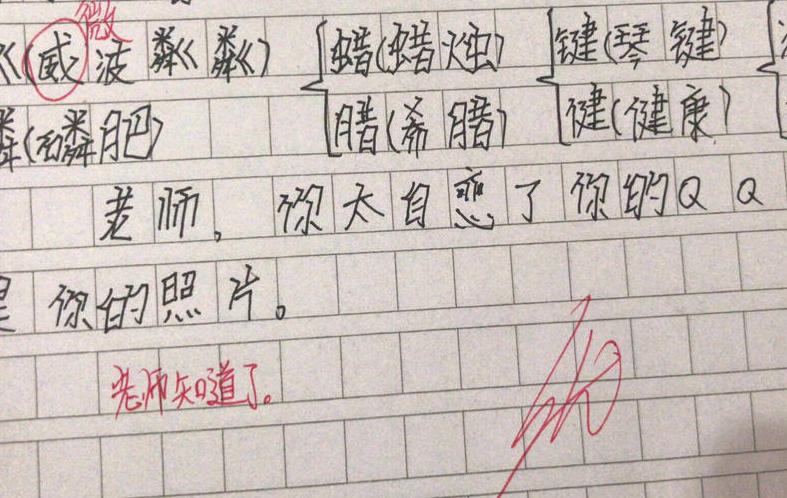 微
(威波粼粼) 蜡(蜡烛) 键(琴键)
(磷肥) 腊(希腊) 健(健康)
老师,你太自恋了你的QQ
是你的照片。
老师知道了。